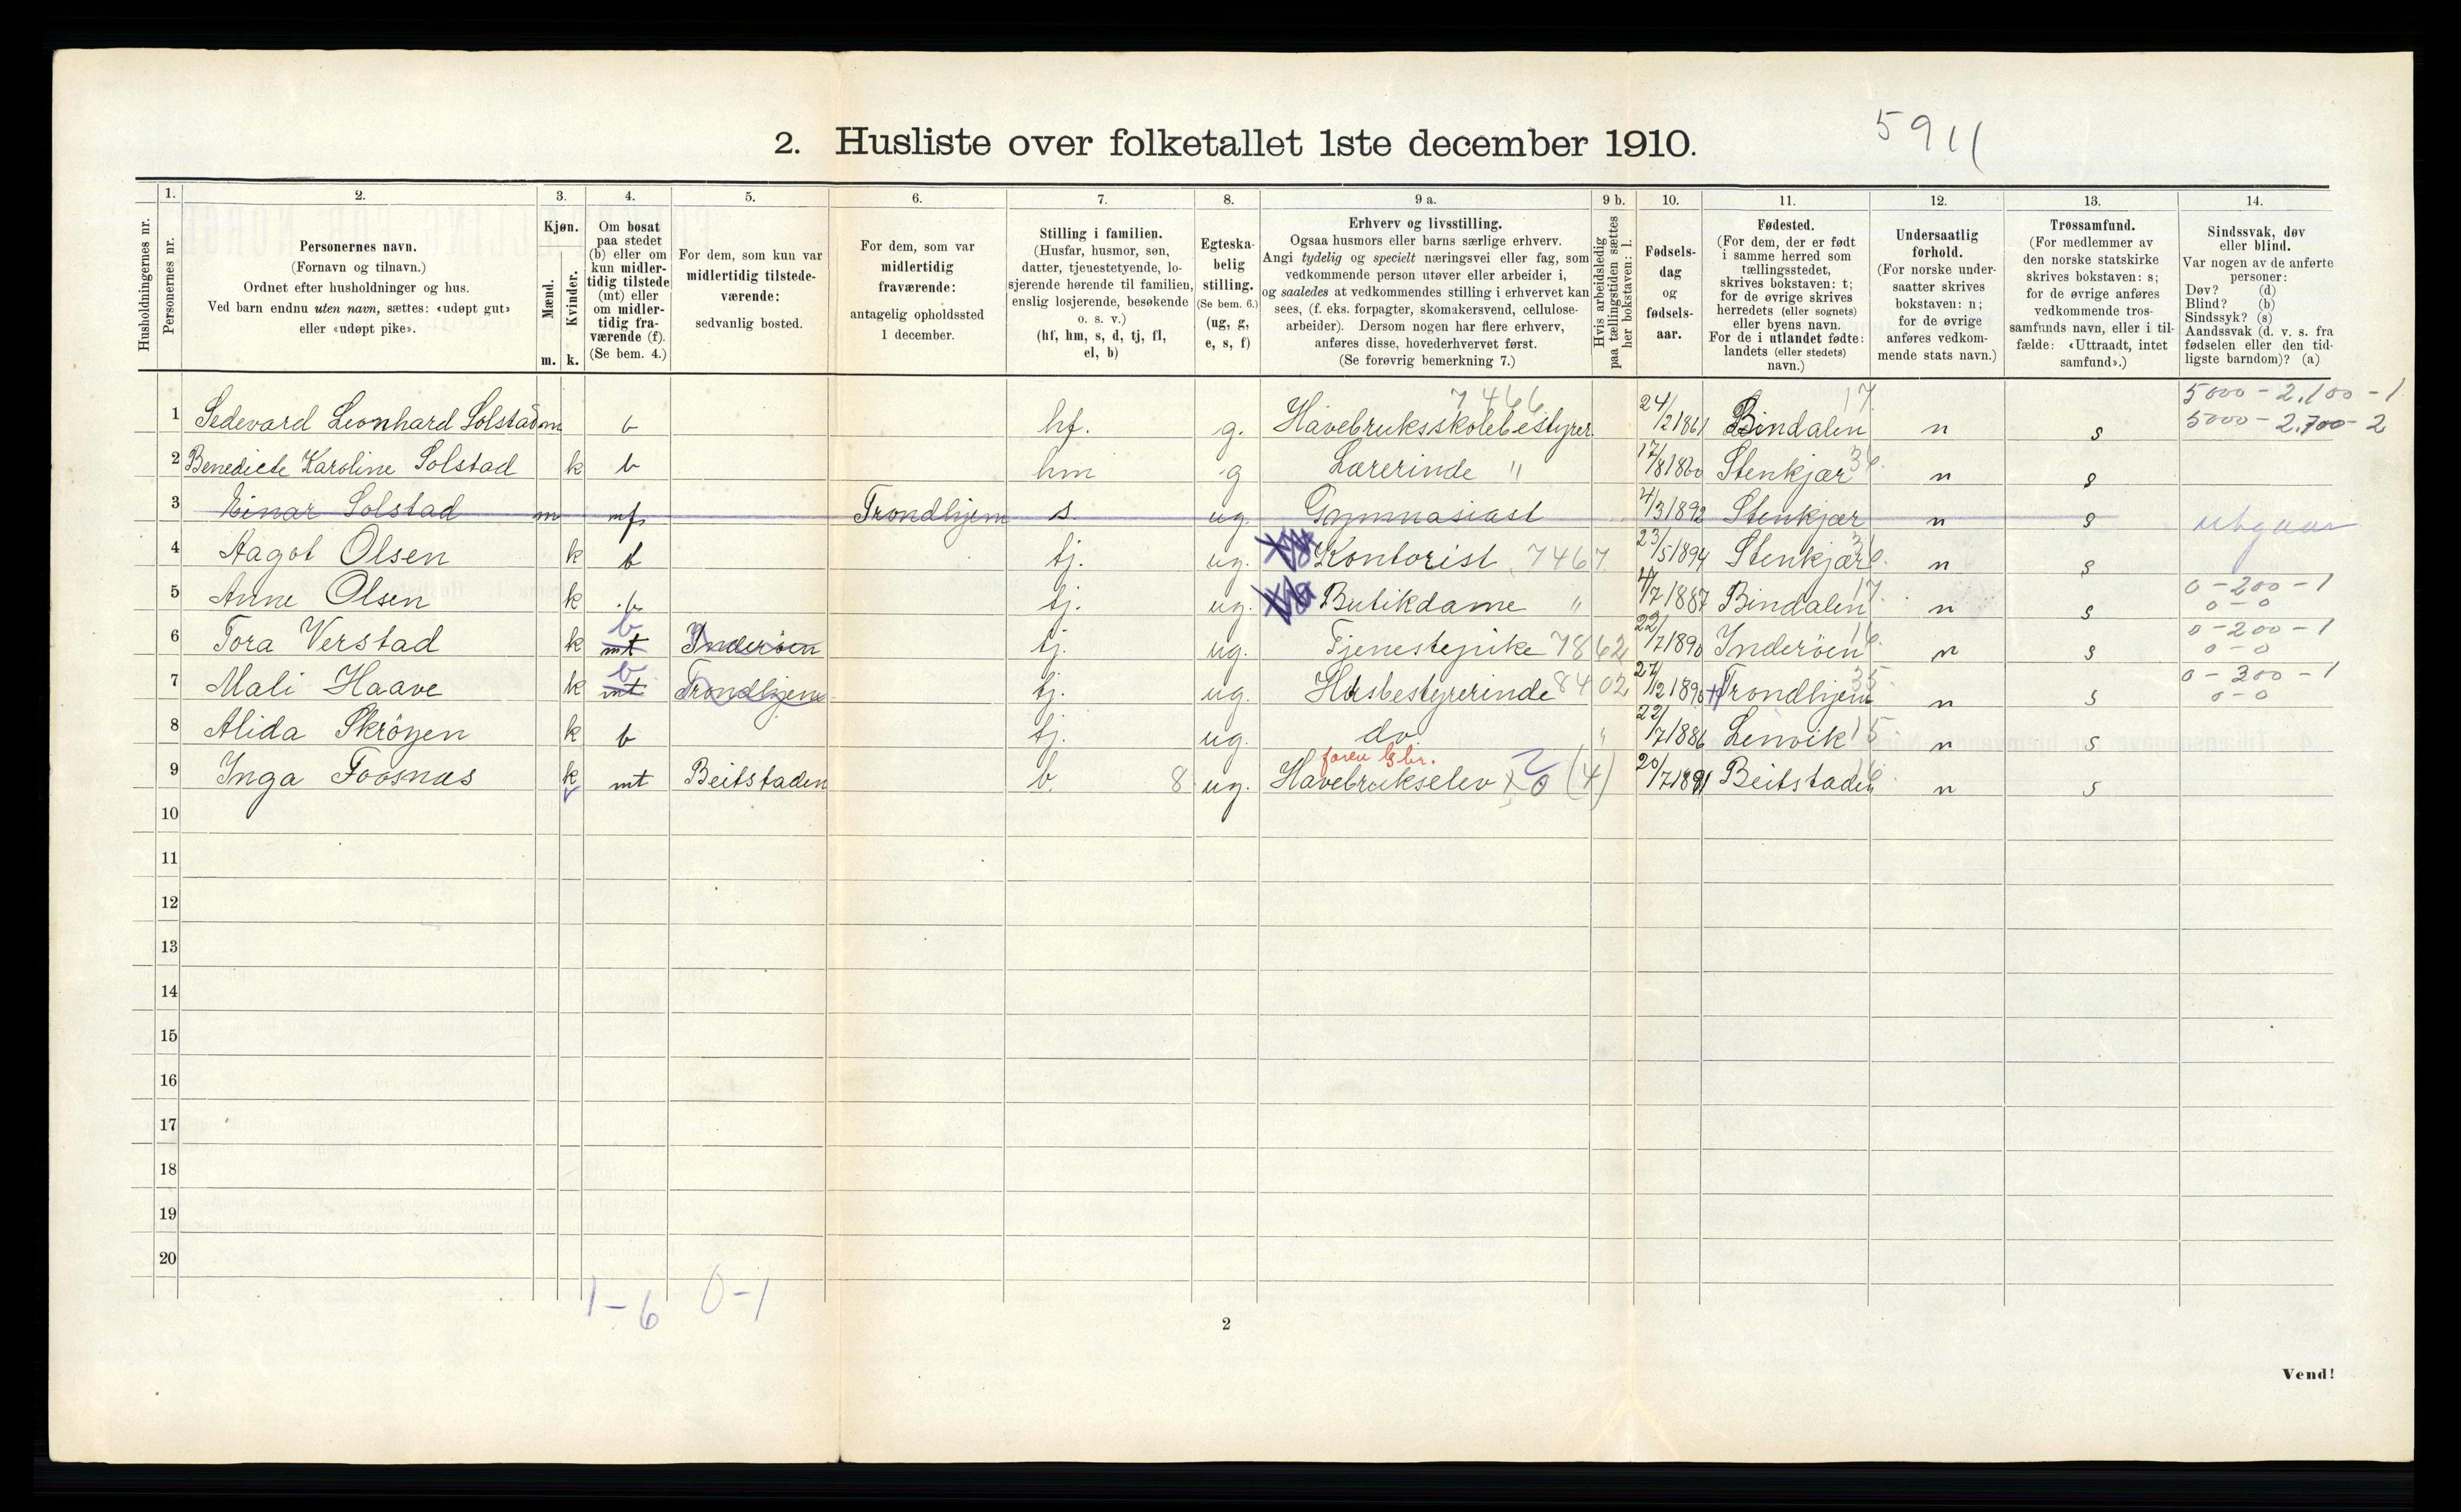 5911
2. Husliste over folketallet 1ste december 1910.
Husholdningernes nr.
1. Personernes nr.
2. Personernes navn.
(Fornavn og tilnavn.)
Ordnet efter husholdninger og hus.
Ved barn endnu uten navn, sættes: «udøpt gut»
eller «udøpt pike».
3. Kjøn.
Mænd. Kvinder.
m. k.
4. Om bosat
paa stedet
(b) eller om
kun midler-
tidig tilstede
(mt) eller
om midler-
tidig fra-
værende (f).
(Se bem. 4.)
5. For dem, som kun var
midlertidig tilstede-
værende:
sedvanlig bosted.
6. For dem, som var
midlertidig
fraværende:
antagelig opholdssted
1 december.
7. Stilling i familien.
(Husfar, husmor, søn,
datter, tjenestetyende, lo-
sjerende hørende til familien,
enslig losjerende, besøkende
o. s. v.)
(hf, hm, s, d, tj, fl,
el, b)
8. Egteska-
belig
stilling.
(Se bem. 6.)
(ug, g,
e, s, f)
9 a. Erhverv og livsstilling.
Ogsaa husmors eller barns særlige erhverv.
Angi tydelig og specielt næringsvei eller fag, som
vedkommende person utøver eller arbeider i,
og saaledes at vedkommendes stilling i erhvervet kan
sees, (f. eks. forpagter, skomakersvend, cellulose-
arbeider). Dersom nogen har flere erhverv,
anføres disse, hovederhvervet først.
(Se forøvrig bemerkning 7.)
9 b. Hvis arbeidsledig
paa tællingstiden sættes
her bokstaven: l.
10. Fødsels-
dag
og
fødsels-
aar.
11. Fødested.
(For dem, der er født
i samme herred som
tællingsstedet,
skrives bokstaven: t;
for de øvrige skrives
herredets (eller sognets)
eller byens navn.
For de i utlandet fødte:
landets (eller stedets)
navn.)
12. Undersaatlig
forhold.
(For norske under-
saatter skrives
bokstaven: n;
for de øvrige
anføres vedkom-
mende stats navn.)
13. Trossamfund.
(For medlemmer av
den norske statskirke
skrives bokstaven: s;
for de øvrige anføres
vedkommende tros-
samfunds navn, eller i til-
fælde: «Uttraadt, intet
samfund».)
14. Sindssvak, døv
eller blind.
Var nogen av de anførte
personer:
Døv? (d)
Blind? (b)
Sindssyk? (s)
Aandssvak (d. v. s. fra
fødselen eller den tid-
ligste barndom)? (a)
7466 17 5000 - 2.100 - 1
1 Sedevard Leonhard Solstad m b hf. g. Havebruksskolebestyrer 24/12 1861 Bindalen n s 5000 - 2.700 - 2
2 Benedicte Karoline Solstad k b hm g Lærerinde " 17/8 1860 Stenkjær 36. n s
3 Einar Solstad m mf Trondhjem s. ug. Gymnasiast 4/3 1892 Stenkjær n s utgaar
4 Aagot Olsen k b tj. ug. Kontorist 7467 23/5 1894 Stenkjær n s
5 Anne Olsen k b tj. ug. Butikdame " 4/7 1887 Bindalen 17. n s 0 - 200 - 1
0 - 0
6 Tora Verstad k mt b Inderøen tj. ug. Tjenestepike 7862 22/7 1890 Inderøen 16 n s 0 - 200 - 1
0 - 0
7 Mali Haave k mt b Trondhjem tj. ug. Husbestyrerinde 8402 24/12 1890 Trondhjem 35. n s 0 - 300 - 1
0 - 0
8 Alida Skrøyen k b tj. ug. do " 22/7 1886 Lenvik 15 n s
foren Gbr.
9 Inga Foosnæs k mt Beitstaden b. 8 ug. Havebrukselev x 0 (4) 20/7 1891 Beitstaden 16. n s
10
11
12
13
14
15
16
17
18
19
20
1 - 6 0 - 1
2
Vend!